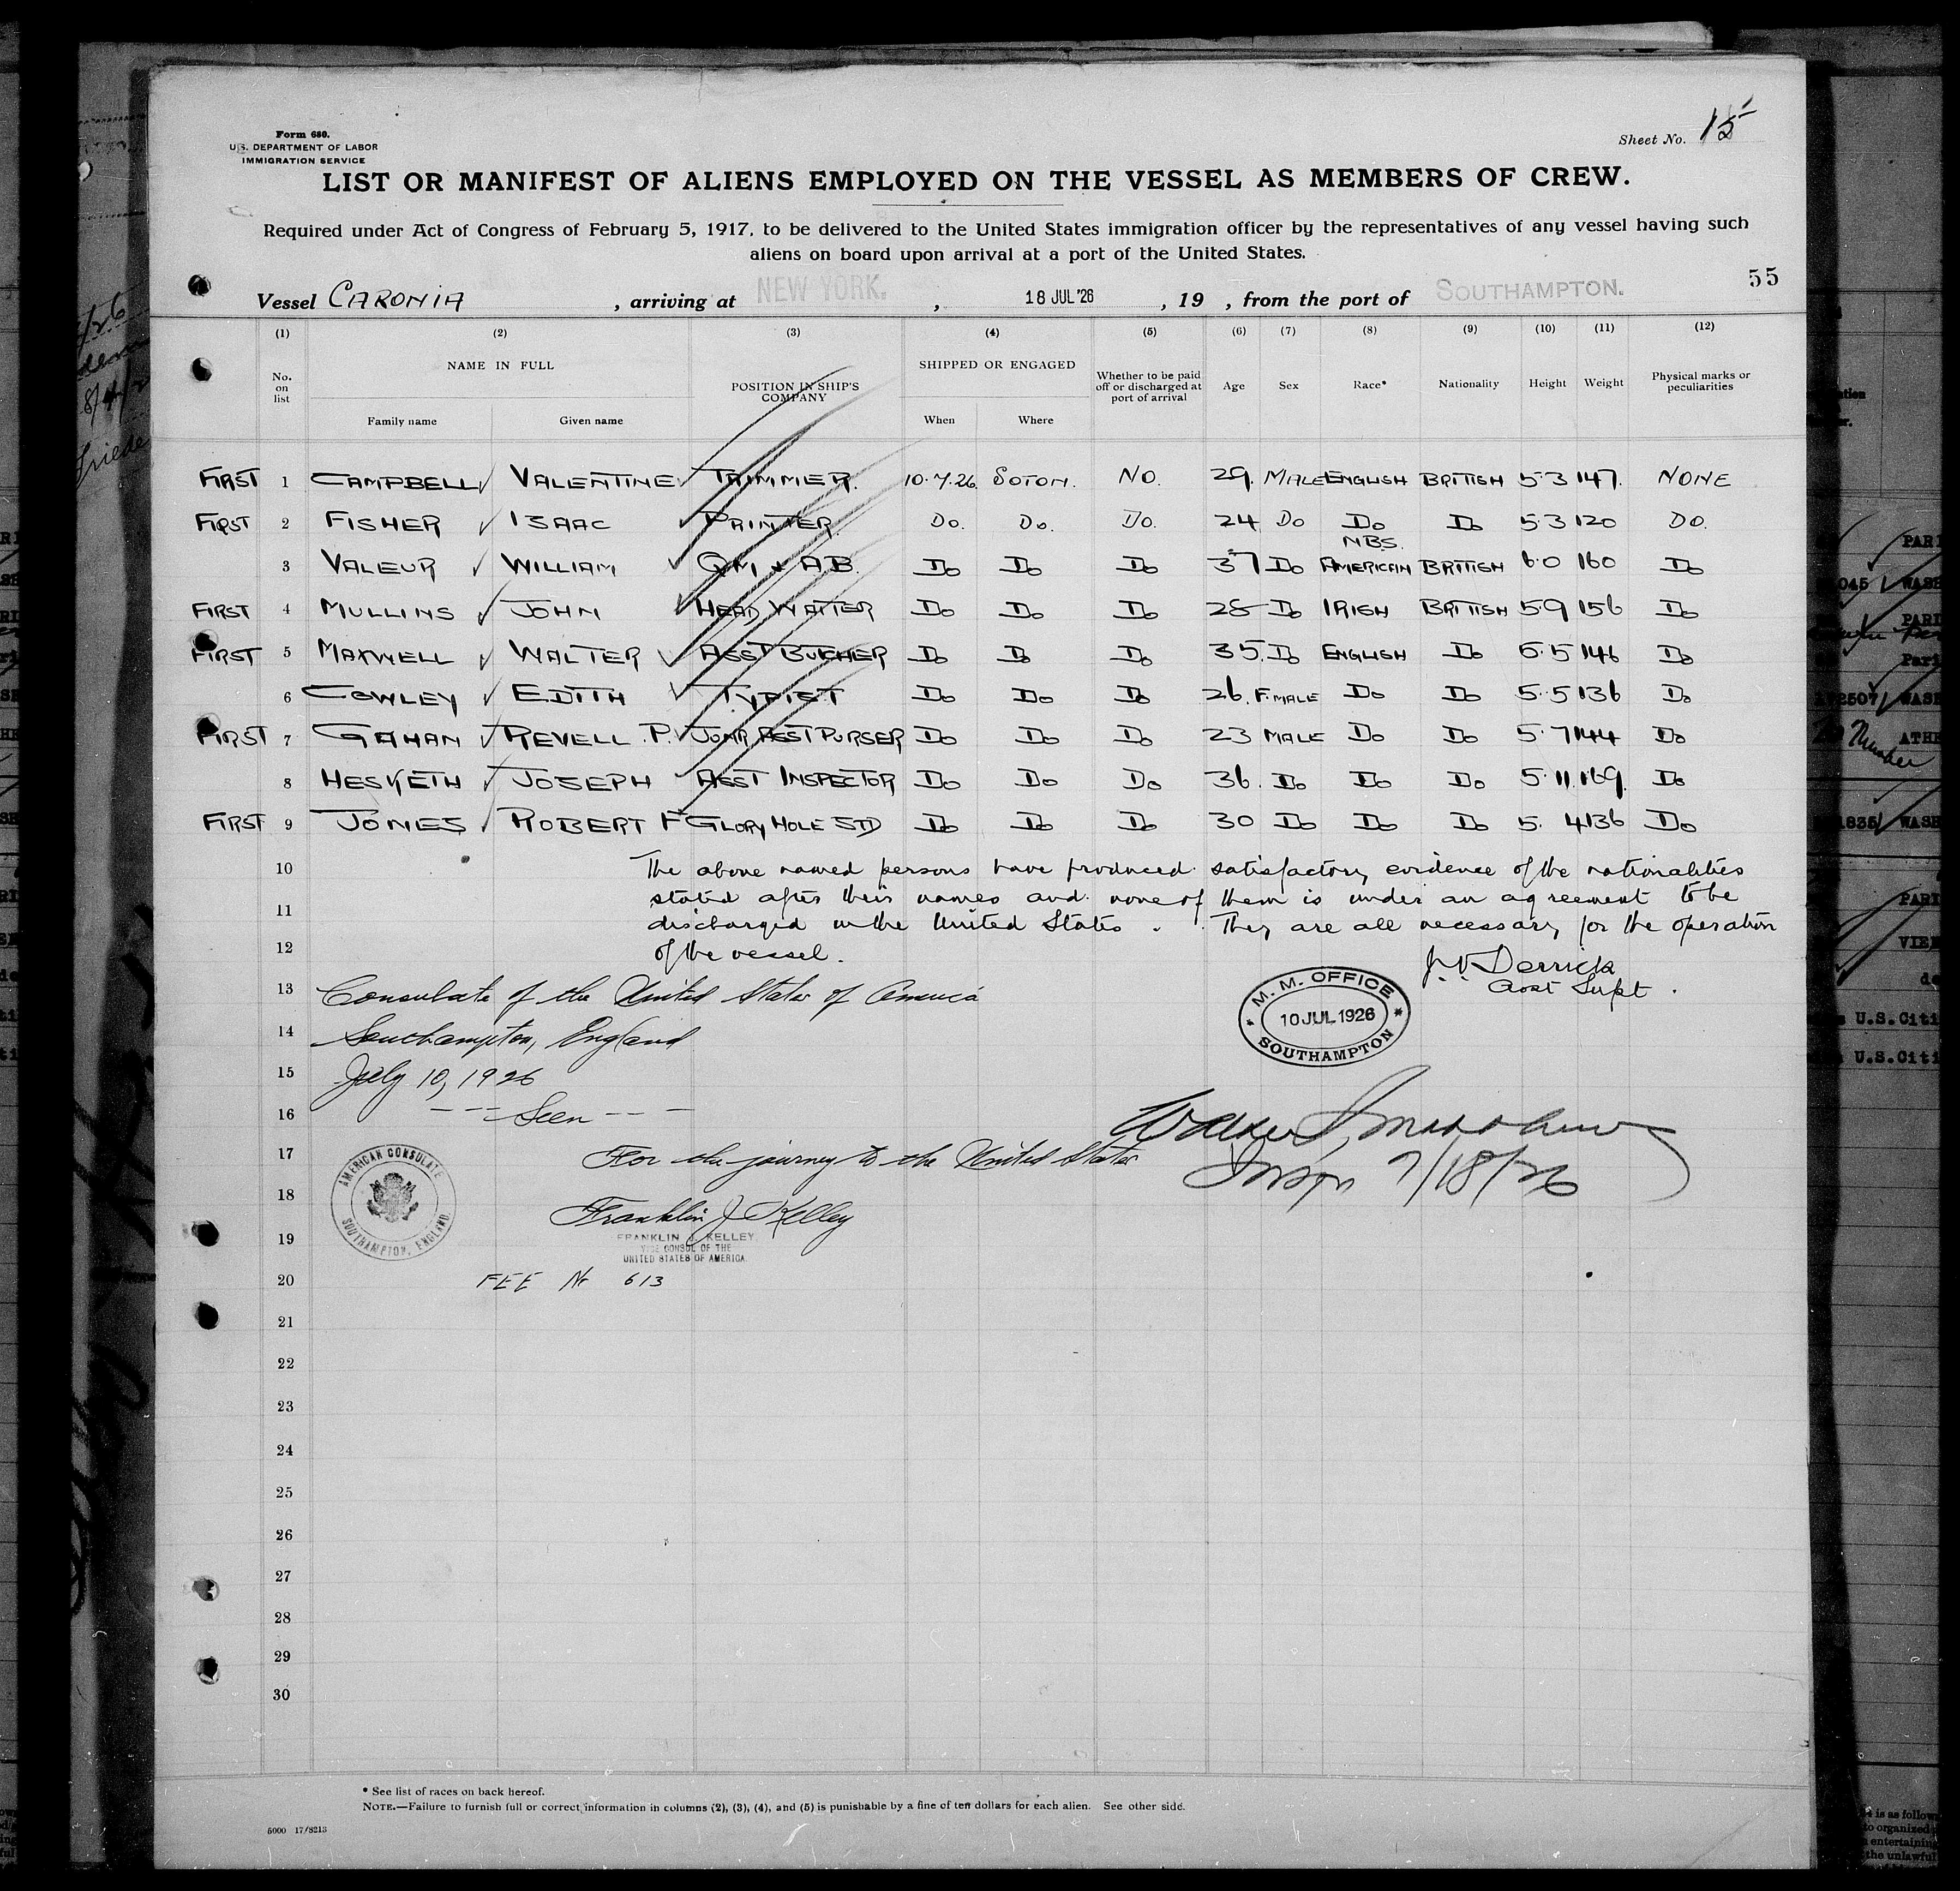 Form 680.
U.S. DEPARTMENT OF LABOR
IMMIGRATION SERVICE
Sheet No. 15
LIST OR MANIFEST OF ALIENS EMPLOYED ON THE VESSEL AS MEMBERS OF CREW.
Required under Act of Congress of February 5, 1917, to be delivered to the United States immigration officer by the representatives of any vessel having such
aliens on board upon arrival at a port of the United States.
55
Vessel CARONIA, arriving at NEW YORK., 18 JUL '26, 19 , from the port of SOUTHAMPTON.
(1) (2) (3) (4) (5) (6) (7) (8) (9) (10) (11) (12)
No. on list NAME IN FULL POSITION IN SHIP'S COMPANY SHIPPED OR ENGAGED Whether to be paid off or discharged at port of arrival Age Sex Race* Nationality Height Weight Physical marks or peculiarities
Family name Given name When Where
FIRST 1 CAMPBELL VALENTINE TRIMMER. 10.7.26. SOTON. NO. 29. MALE ENGLISH BRITISH 5.3 147. NONE
FIRST 2 FISHER ISAAC PRINTER. Do. Do. Do. 24 Do Do Do 5.3 120 Do.
N.B.S.
3 VALEUR WILLIAM QM & AB. Do Do Do 37 Do AMERICAN BRITISH 6.0 160 Do
FIRST 4 MULLINS JOHN HEAD WAITER Do Do Do 28 Do IRISH BRITISH 5.9 156 Do
FIRST 5 MAXWELL WALTER ASST BUTCHER Do Do Do 35. Do ENGLISH Do 5.5 146 Do
6 COWLEY EDITH TYPIST Do Do Do 26. F.MALE Do Do 5.5 136 Do
FIRST 7 GAHAN REVELL .P. JUNR ASST PURSER Do Do Do 23 MALE Do Do 5.7 144 Do
8 HESKETH JOSEPH ASST INSPECTOR Do Do Do 36. Do Do Do 5.11. 169. Do
FIRST 9 JONES ROBERT F GLORY HOLE STD Do Do Do 30 Do Do Do 5. 4 136 Do
10 The above named persons have produced satisfactory evidence of the nationalities
stated after their names and none of them is under an agreement to be
11 discharged in the United States. They are all necessary for the operation
12 of the vessel.
J. V. Derrick
Asst Supt.
13 Consulate of the United States of America
M. M. OFFICE
10 JUL 1926
SOUTHAMPTON
14 Southampton, England
15 July 10, 1926
16 --- Seen ---
17 For the journey to the United States
Insp 7/18/26
AMERICAN CONSULATE
SOUTHAMPTON, ENGLAND.
18 Franklin J. Kelley
19 FRANKLIN J. KELLEY
VICE CONSUL OF THE
UNITED STATES OF AMERICA.
20 FEE Nr 613
21
22
23
24
25
26
27
28
29
30
* See list of races on back hereof.
NOTE.—Failure to furnish full or correct information in columns (2), (3), (4), and (5) is punishable by a fine of ten dollars for each alien. See other side.
5000 17/8213